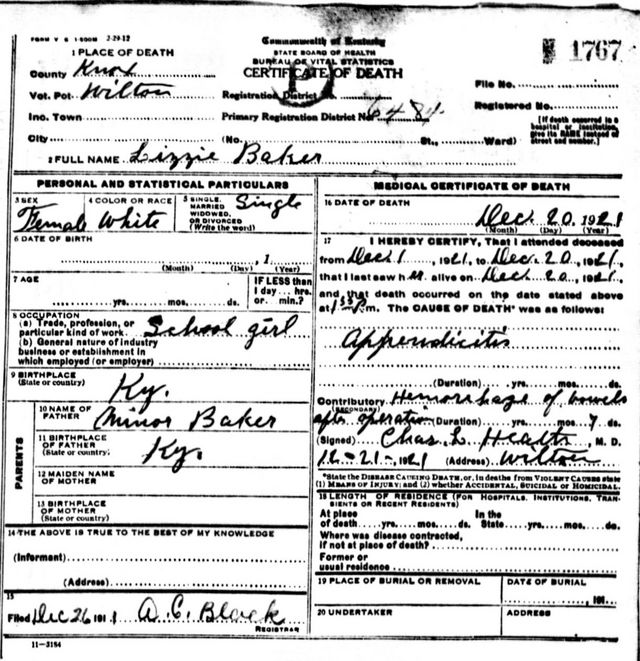 FORM V S 1-500M 2-29-12
1 PLACE OF DEATH
County Knox
Vot. Pct Wilton
Inc. Town
City (No. St., Ward)
2 FULL NAME Lizzie Baker
Commonwealth of Kentucky
STATE BOARD OF HEALTH
BUREAU OF VITAL STATISTICS
CERTIFICATE OF DEATH
Registration District No.
Primary Registration District No. 6484
1767
File No.
Registered No.
[If death occurred in a
hospital or institution,
give its NAME instead of
street and number.]
PERSONAL AND STATISTICAL PARTICULARS
3 SEX
Female
4 COLOR OR RACE
White
5 SINGLE,
MARRIED
WIDOWED,
OR DIVORCED
(Write the word)
Single
6 DATE OF BIRTH
, 1
(Month) (Day) (Year)
7 AGE
yrs. mos. ds.
IF LESS than
1 day... hrs.
or min.?
8 OCCUPATION
(a) Trade, profession, or
particular kind of work School girl
(b) General nature of industry
business or establishment in
which employed (or employer)
9 BIRTHPLACE
(State or country) Ky.
PARENTS
10 NAME OF
FATHER Minor Baker
11 BIRTHPLACE
OF FATHER
(State or country) Ky.
12 MAIDEN NAME
OF MOTHER
13 BIRTHPLACE
OF MOTHER
(State or country)
14 THE ABOVE IS TRUE TO THE BEST OF MY KNOWLEDGE
(Informant)
(Address)
15
Filed Dec 26 191 1 A. C. Black
REGISTRAR
11-3184
MEDICAL CERTIFICATE OF DEATH
16 DATE OF DEATH
Dec. 20, 1921
(Month) (Day) (Year)
17 I HEREBY CERTIFY, That I attended deceased
from Dec 1, 1921, to Dec. 20, 1921,
that I last saw h alive on Dec. 20, 1921,
and that death occurred on the date stated above
at m. The CAUSE OF DEATH* was as follows:
Appendicitis
(Duration) yrs. mos. ds.
Contributory Hemorrhage of bowels
(SECONDARY)
after operation (Duration) yrs. mos. 7 ds.
(Signed) Chas. L. Heath, M. D.
12-21-, 1921 (Address) Wilton
*State the DISEASE CAUSING DEATH, or, in deaths from VIOLENT CAUSES state
(1) MEANS OF INJURY; and (2) whether ACCIDENTAL, SUICIDAL or HOMICIDAL.
18 LENGTH OF RESIDENCE (FOR HOSPITALS, INSTITUTIONS, TRAN-
SIENTS OR RECENT RESIDENTS)
At place In the
of death yrs. mos. ds. State yrs. mos. ds.
Where was disease contracted,
if not at place of death?
Former or
usual residence
19 PLACE OF BURIAL OR REMOVAL
DATE OF BURIAL
, 191
20 UNDERTAKER
ADDRESS